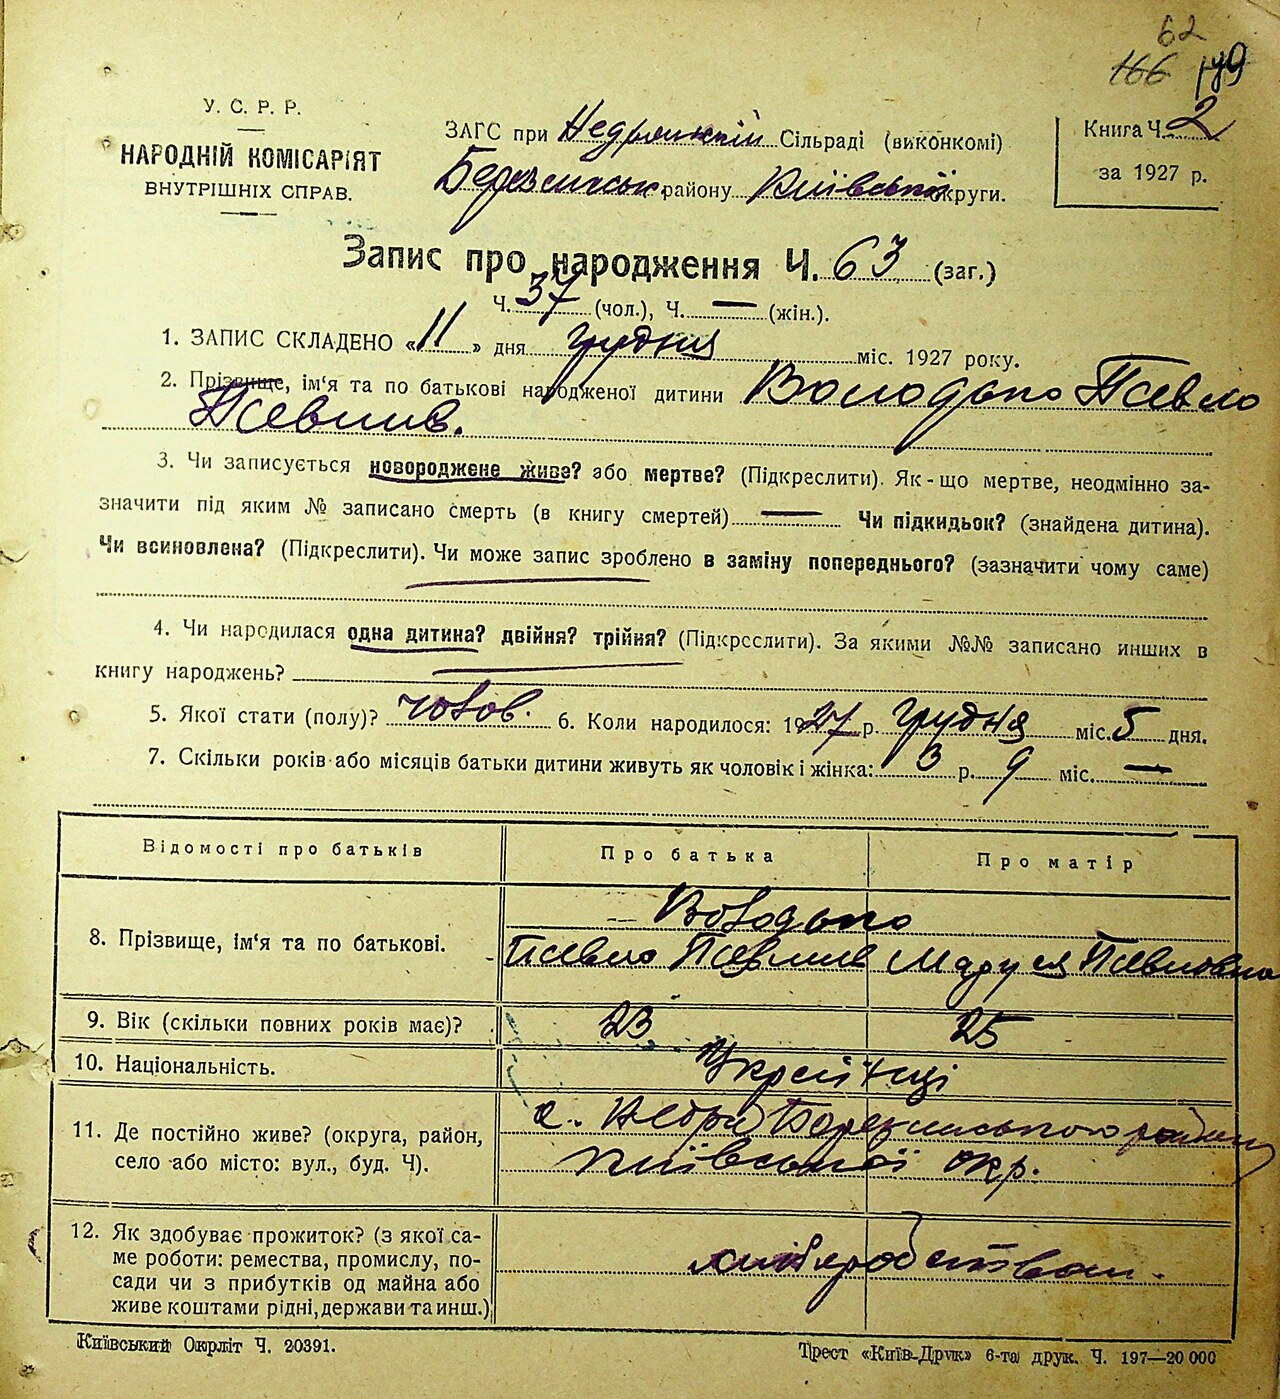 62
166 179
У. С. Р. Р.
НАРОДНІЙ КОМІСАРІЯТ
ВНУТРІШНІХ СПРАВ.
ЗАГС при Недрянській Сільраді (виконкомі)
Березанськ. району Київської округи.
Книга Ч. 2
за 1927 р.
Запис про народження Ч. 63 (заг.)
Ч. 37 (чол.), Ч. — (жін.).
1. ЗАПИС СКЛАДЕНО «11» дня грудня міс. 1927 року.
2. Прізвище, ім'я та по батькові народженої дитини Володько Павло
Павлів.
3. Чи записується новороджене живе? або мертве? (Підкреслити). Як-що мертве, неодмінно за-
значити під яким № записано смерть (в книгу смертей) — Чи підкидьок? (знайдена дитина).
Чи всиновлена? (Підкреслити). Чи може запис зроблено в заміну попереднього? (зазначити чому саме)
4. Чи народилася одна дитина? двійня? трійня? (Підкреслити). За якими №№ записано инших в
книгу народжень?
5. Якої стати (полу)? чолов. 6. Коли народилося: 1927 р. Грудня міс. 5 дня.
7. Скільки років або місяців батьки дитини живуть як чоловік і жінка: 3 р. 9 міс. —
Відомості про батьків Про батька Про матір
8. Прізвище, ім'я та по батькові.
Володько
Павло Павлів Маруся Павловна
9. Вік (скільки повних років має)? 23 25
10. Національність. Українці
11. Де постійно живе? (округа, район,
село або місто: вул., буд. Ч).
с. Недри Березанського району
Київської окр.
12. Як здобуває прожиток? (з якої са-
ме роботи: ремества, промислу, по-
сади чи з прибутків од майна або
живе коштами рідні, держави та инш.)
хліборобством.
Київський Окрліт Ч. 20391.
Трест «Київ-Друк» 6-та друк. Ч. 197—20 000